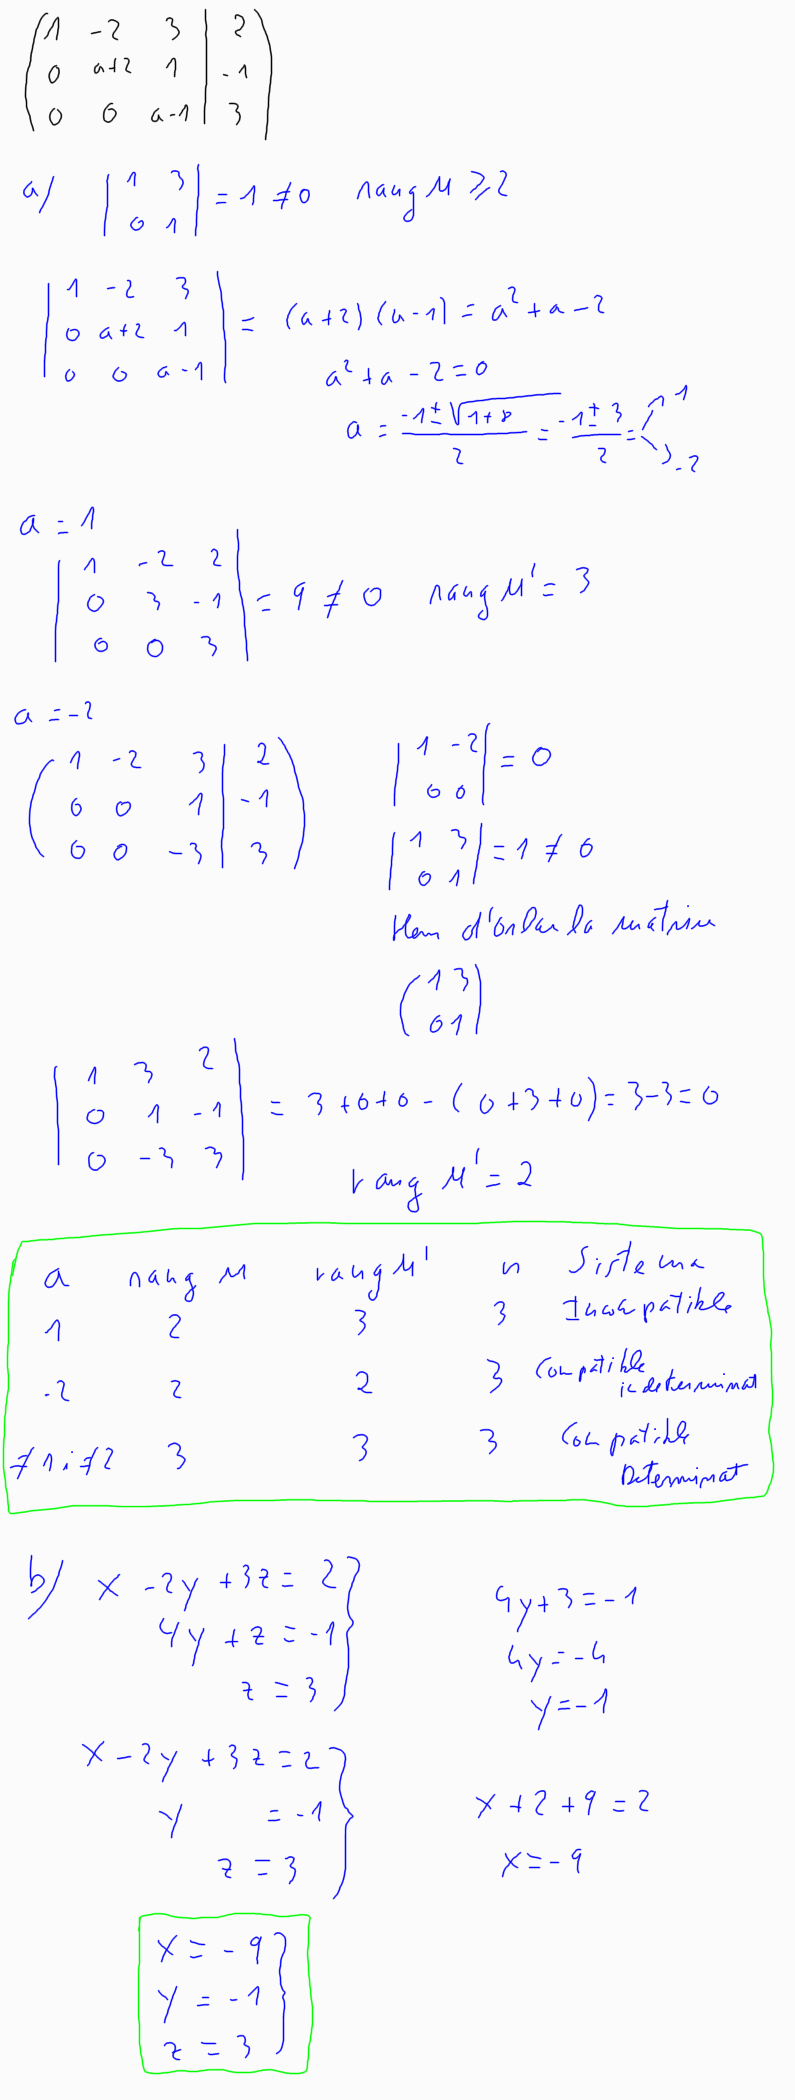 ( 1 -2 3 | 2 )
( 0 a+2 1 | -1 )
( 0 0 a-1 | 3 )
a/ | 1 3 | = 1 ≠ 0 rang M ⩾ 2
| 0 1 |
| 1 -2 3 |
| 0 a+2 1 | = (a+2) (a-1) = a² + a - 2
| 0 0 a-1 |
a² + a - 2 = 0
a = (-1 ± √(1+8)) / 2 = (-1 ± 3) / 2 = 1
-2
a = 1
| 1 -2 2 |
| 0 3 -1 | = 9 ≠ 0 rang M' = 3
| 0 0 3 |
a = -2
( 1 -2 3 | 2 )
( 0 0 1 | -1 )
( 0 0 -3 | 3 )
| 1 -2 | = 0
| 0 0 |
| 1 3 | = 1 ≠ 0
| 0 1 |
Hem d'orlar la matriu
( 1 3 )
( 0 1 )
| 1 3 2 |
| 0 1 -1 | = 3 + 0 + 0 - ( 0 + 3 + 0 ) = 3 - 3 = 0
| 0 -3 3 |
rang M' = 2
a rang M rang M' n Sistema
1 2 3 3 Incompatible
-2 2 2 3 Compatible indeterminat
≠ 1 i ≠ 2 3 3 3 Compatible Determinat
b/ x - 2y + 3z = 2 }
4y + z = -1
z = 3
4y + 3 = -1
4y = -4
y = -1
x - 2y + 3z = 2 }
y = -1
z = 3
x + 2 + 9 = 2
x = -9
x = -9 }
y = -1
z = 3